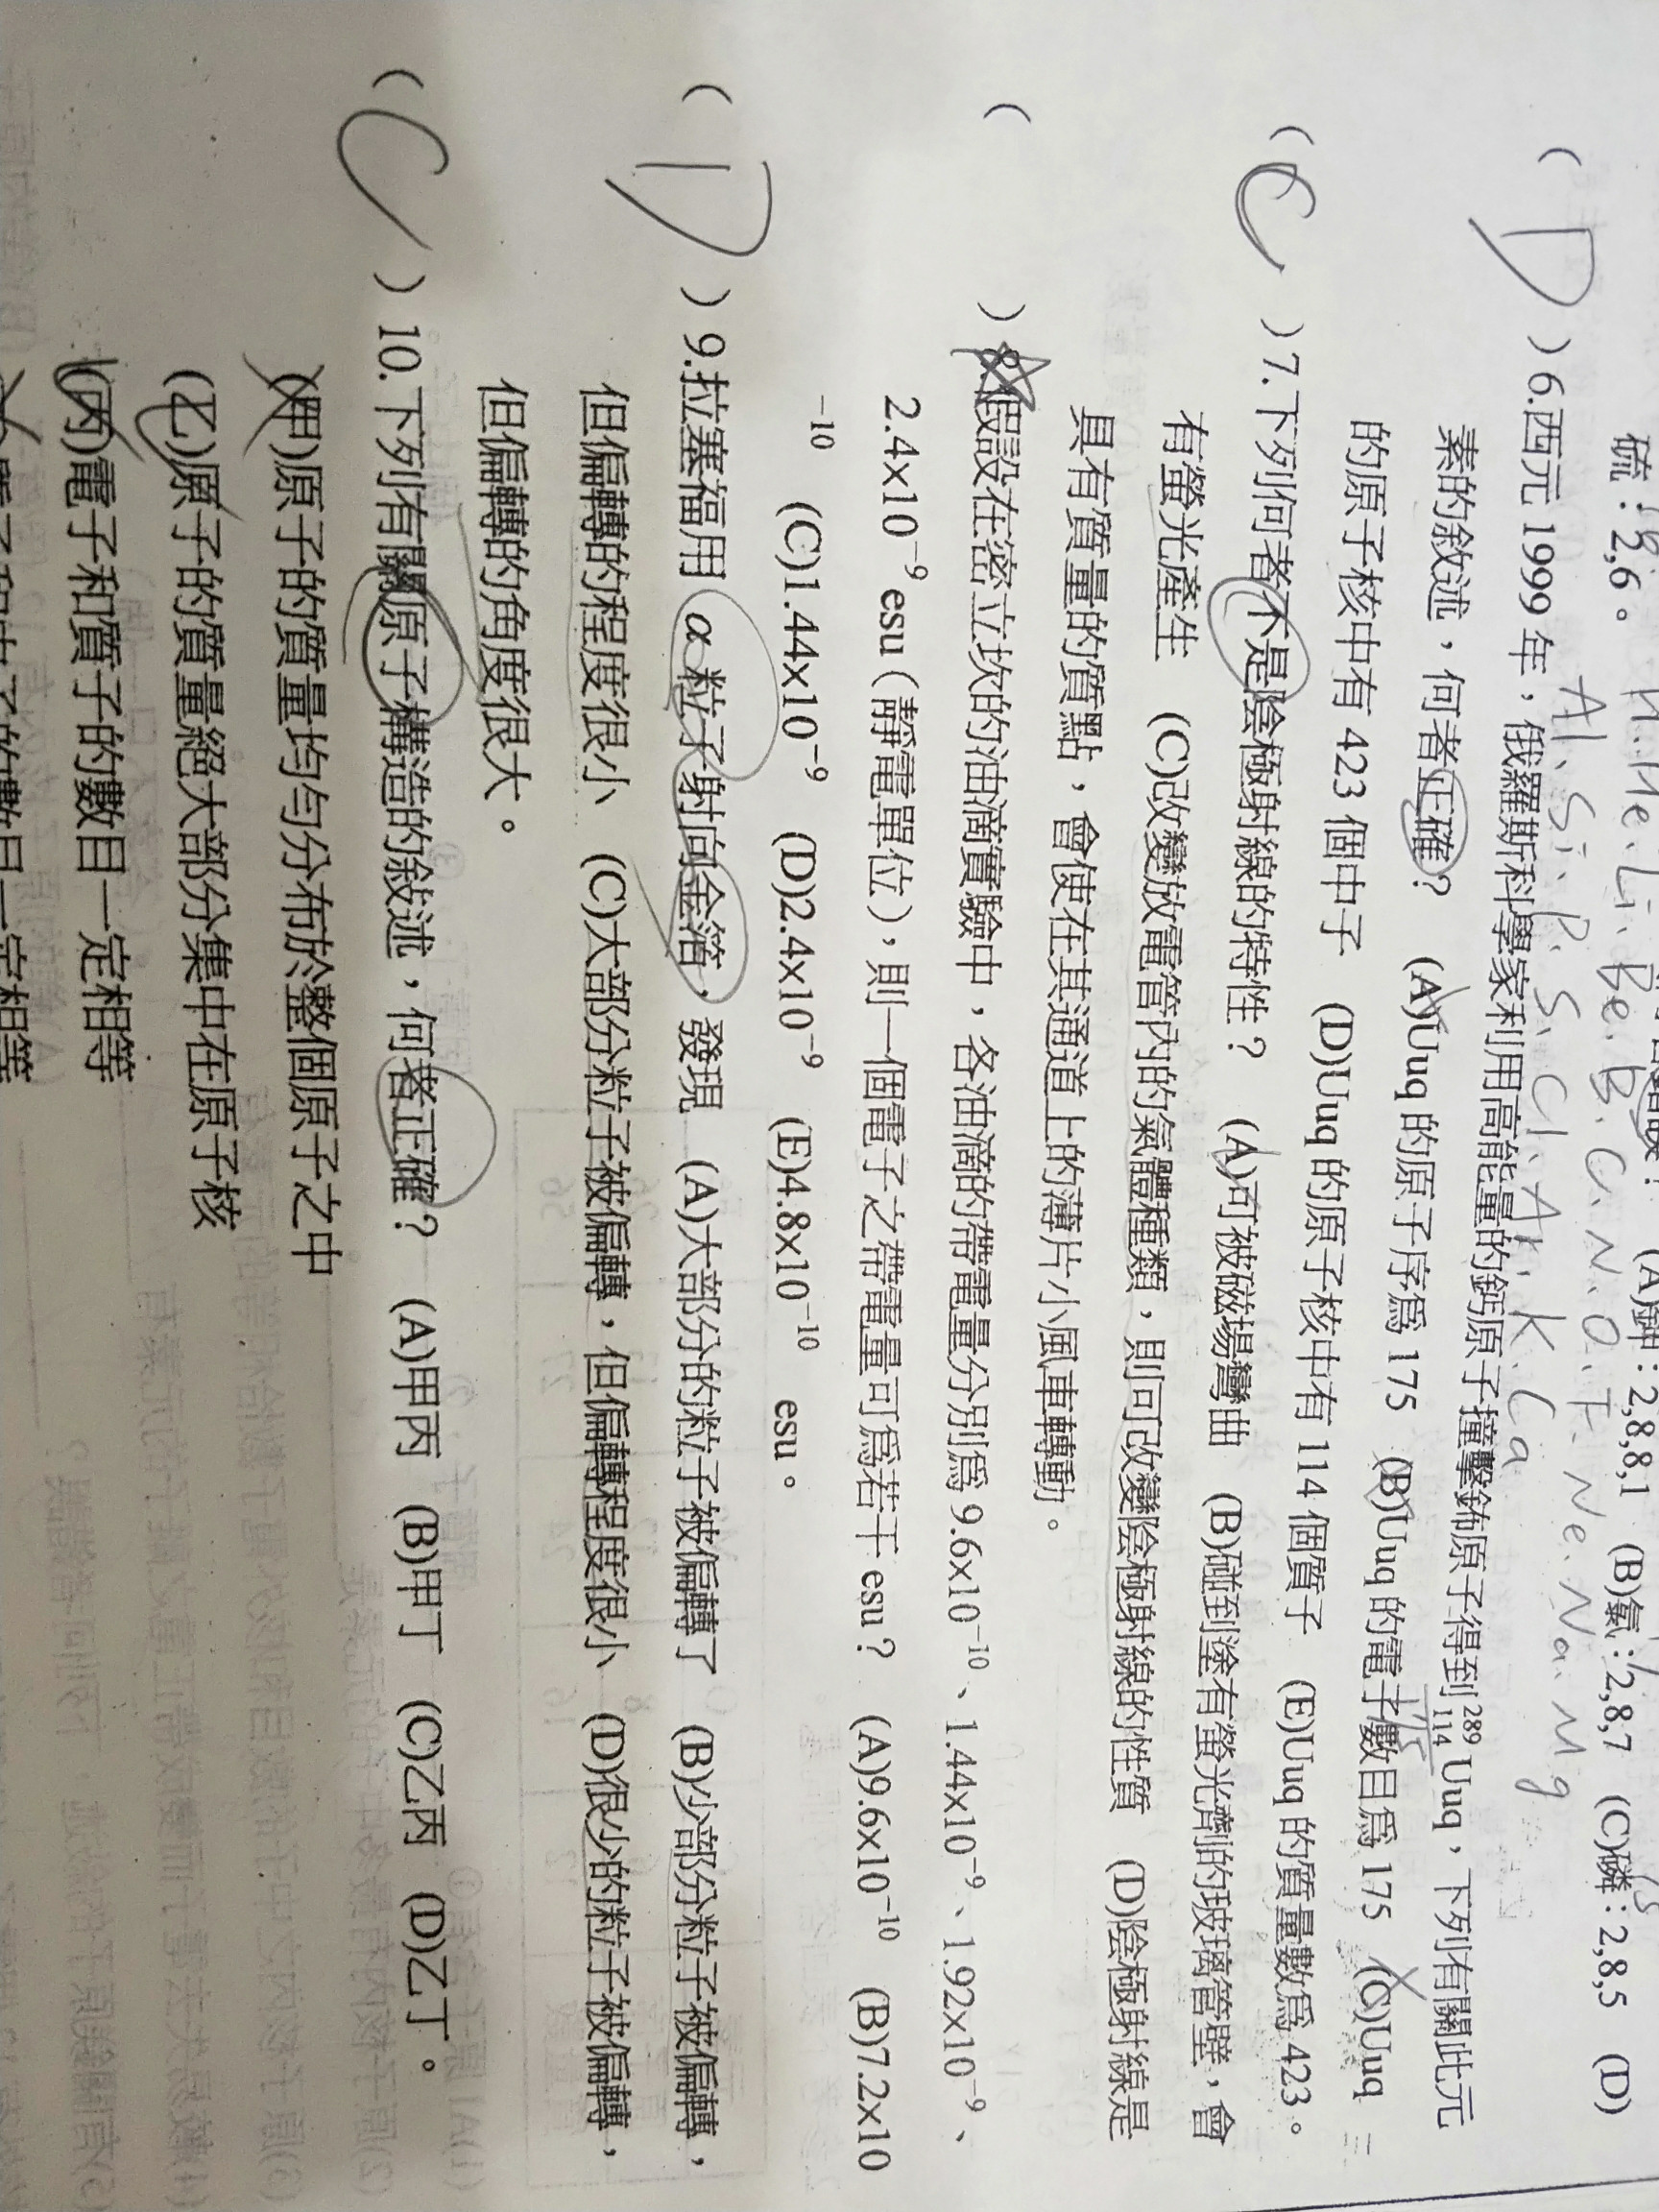 硫：2,6。 (A)鉀：2,8,8,1 (B)氯：2,8,7 (C)磷：2,8,5 (D)
H. He. Li. Be. B. C. N. O. F. Ne. Na. Mg
Al. Si. P. S. Cl. Ar. K. Ca
( D )6.西元1999年，俄羅斯科學家利用高能量的鈣原子撞擊鈽原子得到²⁸⁹₁₁₄Uuq，下列有關此元
素的敘述，何者正確？ (A)Uuq的原子序為175 (B)Uuq的電子數目為175 (C)Uuq
的原子核中有423個中子 (D)Uuq的原子核中有114個質子 (E)Uuq的質量數為423。
( C )7.下列何者不是陰極射線的特性？ (A)可被磁場彎曲 (B)碰到塗有螢光劑的玻璃管壁，會
有螢光產生 (C)改變放電管內的氣體種類，則可改變陰極射線的性質 (D)陰極射線是
具有質量的質點，會使在其通道上的薄片小風車轉動。
( )8.假設在密立坎的油滴實驗中，各油滴的帶電量分別為9.6x10⁻¹⁰、1.44x10⁻⁹、1.92x10⁻⁹、
2.4x10⁻⁹ esu（靜電單位），則一個電子之帶電量可為若干esu？ (A)9.6x10⁻¹⁰ (B)7.2x10
⁻¹⁰ (C)1.44x10⁻⁹ (D)2.4x10⁻⁹ (E)4.8x10⁻¹⁰ esu。
( D )9.拉塞福用α粒子射向金箔，發現 (A)大部分的粒子被偏轉了 (B)少部分粒子被偏轉，
但偏轉的程度很小 (C)大部分粒子被偏轉，但偏轉程度很小 (D)很少的粒子被偏轉，
但偏轉的角度很大。
( C )10.下列有關原子構造的敘述，何者正確？ (A)甲丙 (B)甲丁 (C)乙丙 (D)乙丁。
(甲)原子的質量均勻分布於整個原子之中
(乙)原子的質量絕大部分集中在原子核
(丙)電子和質子的數目一定相等